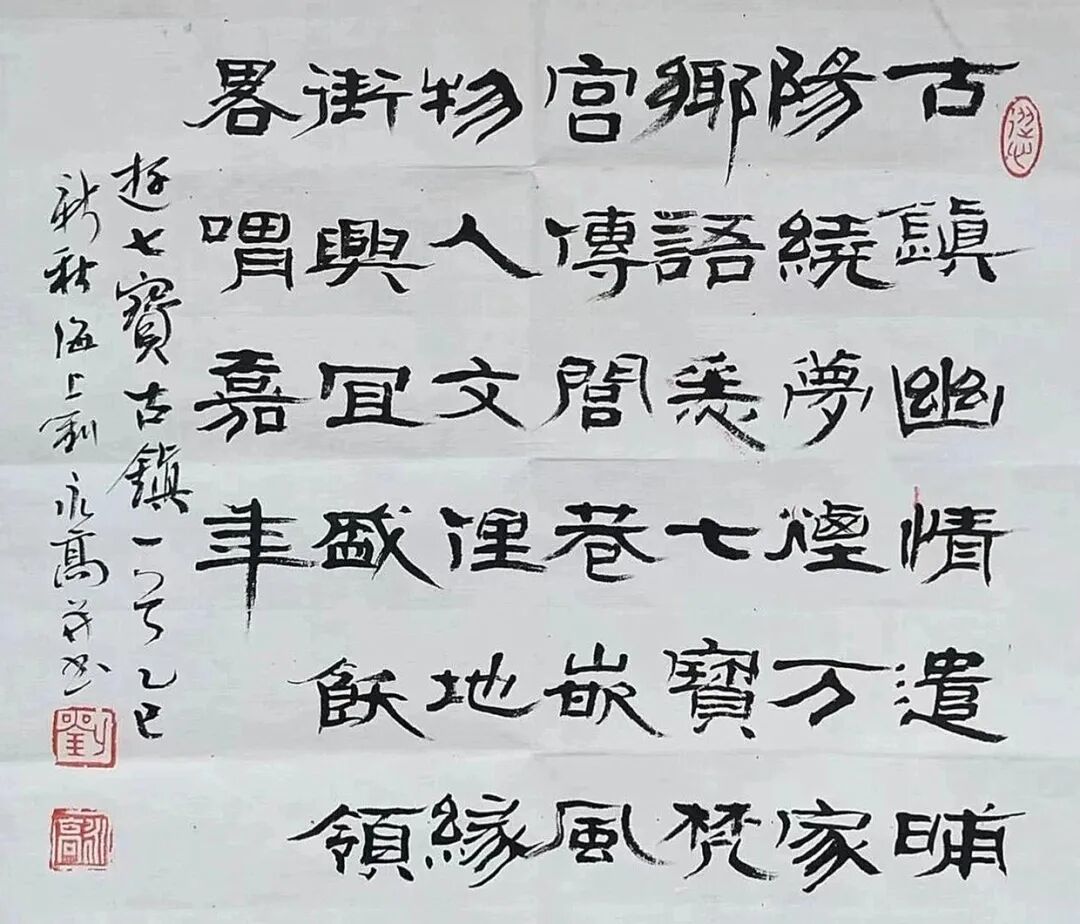 古鎮幽情遣晡
陽繞夢煙万家
鄉語悉七寶梵
宮傳閭巷嵌風
物人文俚地緣
街興宜盛飫領
畧喟嘉年
遊七寶古鎮一首乙巳
新秋海上劉永高并書
劉
永高